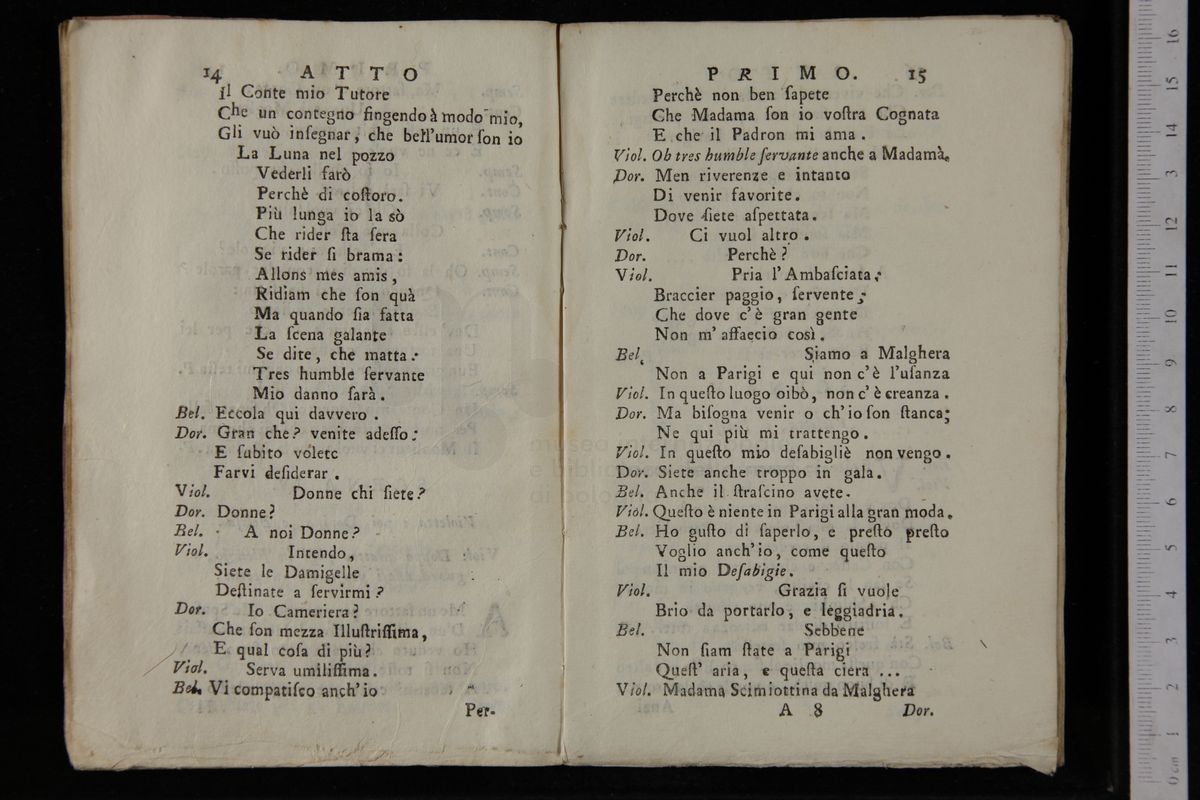 14 ATTO
il Conte mio Tutore
Che un contegno fingendo à modo mio,
Gli vuò inſegnar, che bell'umor ſon io
La Luna nel pozzo
Vederli farò
Perchè di coſtoro.
Più lunga io la sò
Che rider ſta ſera
Se rider ſi brama:
Allons mes amis,
Ridiam che ſon quà
Ma quando ſia fatta
La ſcena galante
Se dite, che matta:
Tres humble ſervante
Mio danno ſarà.
Bel. Eccola qui davvero.
Dor. Gran che? venite adeſſo:
E ſubito volete
Farvi deſiderar.
Viol. Donne chi ſiete?
Dor. Donne?
Bel. A noi Donne?
Viol. Intendo,
Siete le Damigelle
Deſtinate a ſervirmi?
Dor. Io Cameriera?
Che ſon mezza Illuſtriſſima,
E qual coſa di più?
Viol. Serva umiliſſima.
Bel. Vi compatiſco anch'io
Per-
PRIMO. 15
Perchè non ben ſapete
Che Madama ſon io voſtra Cognata
E che il Padron mi ama.
Viol. Oh tres humble ſervante anche a Madamà.
Dor. Men riverenze e intanto
Di venir favorite.
Dove ſiete aſpettata.
Viol. Ci vuol altro.
Dor. Perchè?
Viol. Pria l'Ambaſciata;
Braccier paggio, ſervente;
Che dove c'è gran gente
Non m'affaecio così.
Bel. Siamo a Malghera
Non a Parigi e qui non c'è l'uſanza
Viol. In queſto luogo oibò, non c'è creanza.
Dor. Ma biſogna venir o ch'io ſon ſtanca;
Ne qui più mi trattengo.
Viol. In queſto mio deſabigliè non vengo.
Dor. Siete anche troppo in gala.
Bel. Anche il ſtraſcino avete.
Viol. Queſto è niente in Parigi alla gran moda.
Bel. Ho guſto di ſaperlo, e preſto preſto
Voglio anch'io, come queſto
Il mio Deſabigie.
Viol. Grazia ſi vuole
Brio da portarlo, e leggiadria.
Bel. Sebbene
Non ſiam ſtate a Parigi
Queſt' aria, e queſta ciera ...
Viol. Madama Scimiottina da Malghera
A 8 Dor.